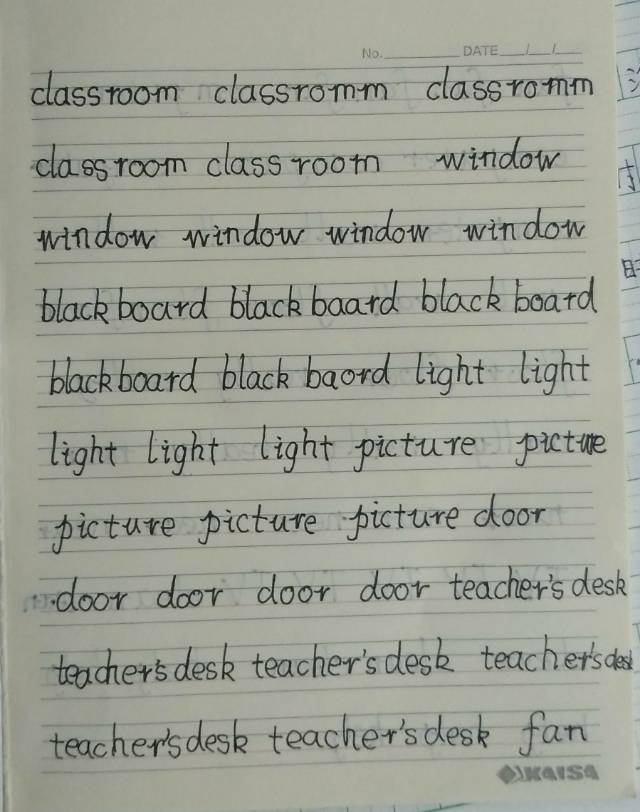 No. DATE / /
classroom classromm classromm
classroom classroom window
window window window window
blackboard blackbaard blackboard
blackboard blackbaord light light
light light light picture picture
picture picture picture door
door door door door teacher's desk
teacher's desk teacher's desk teacher's desk
teacher's desk teacher's desk fan
KAISA